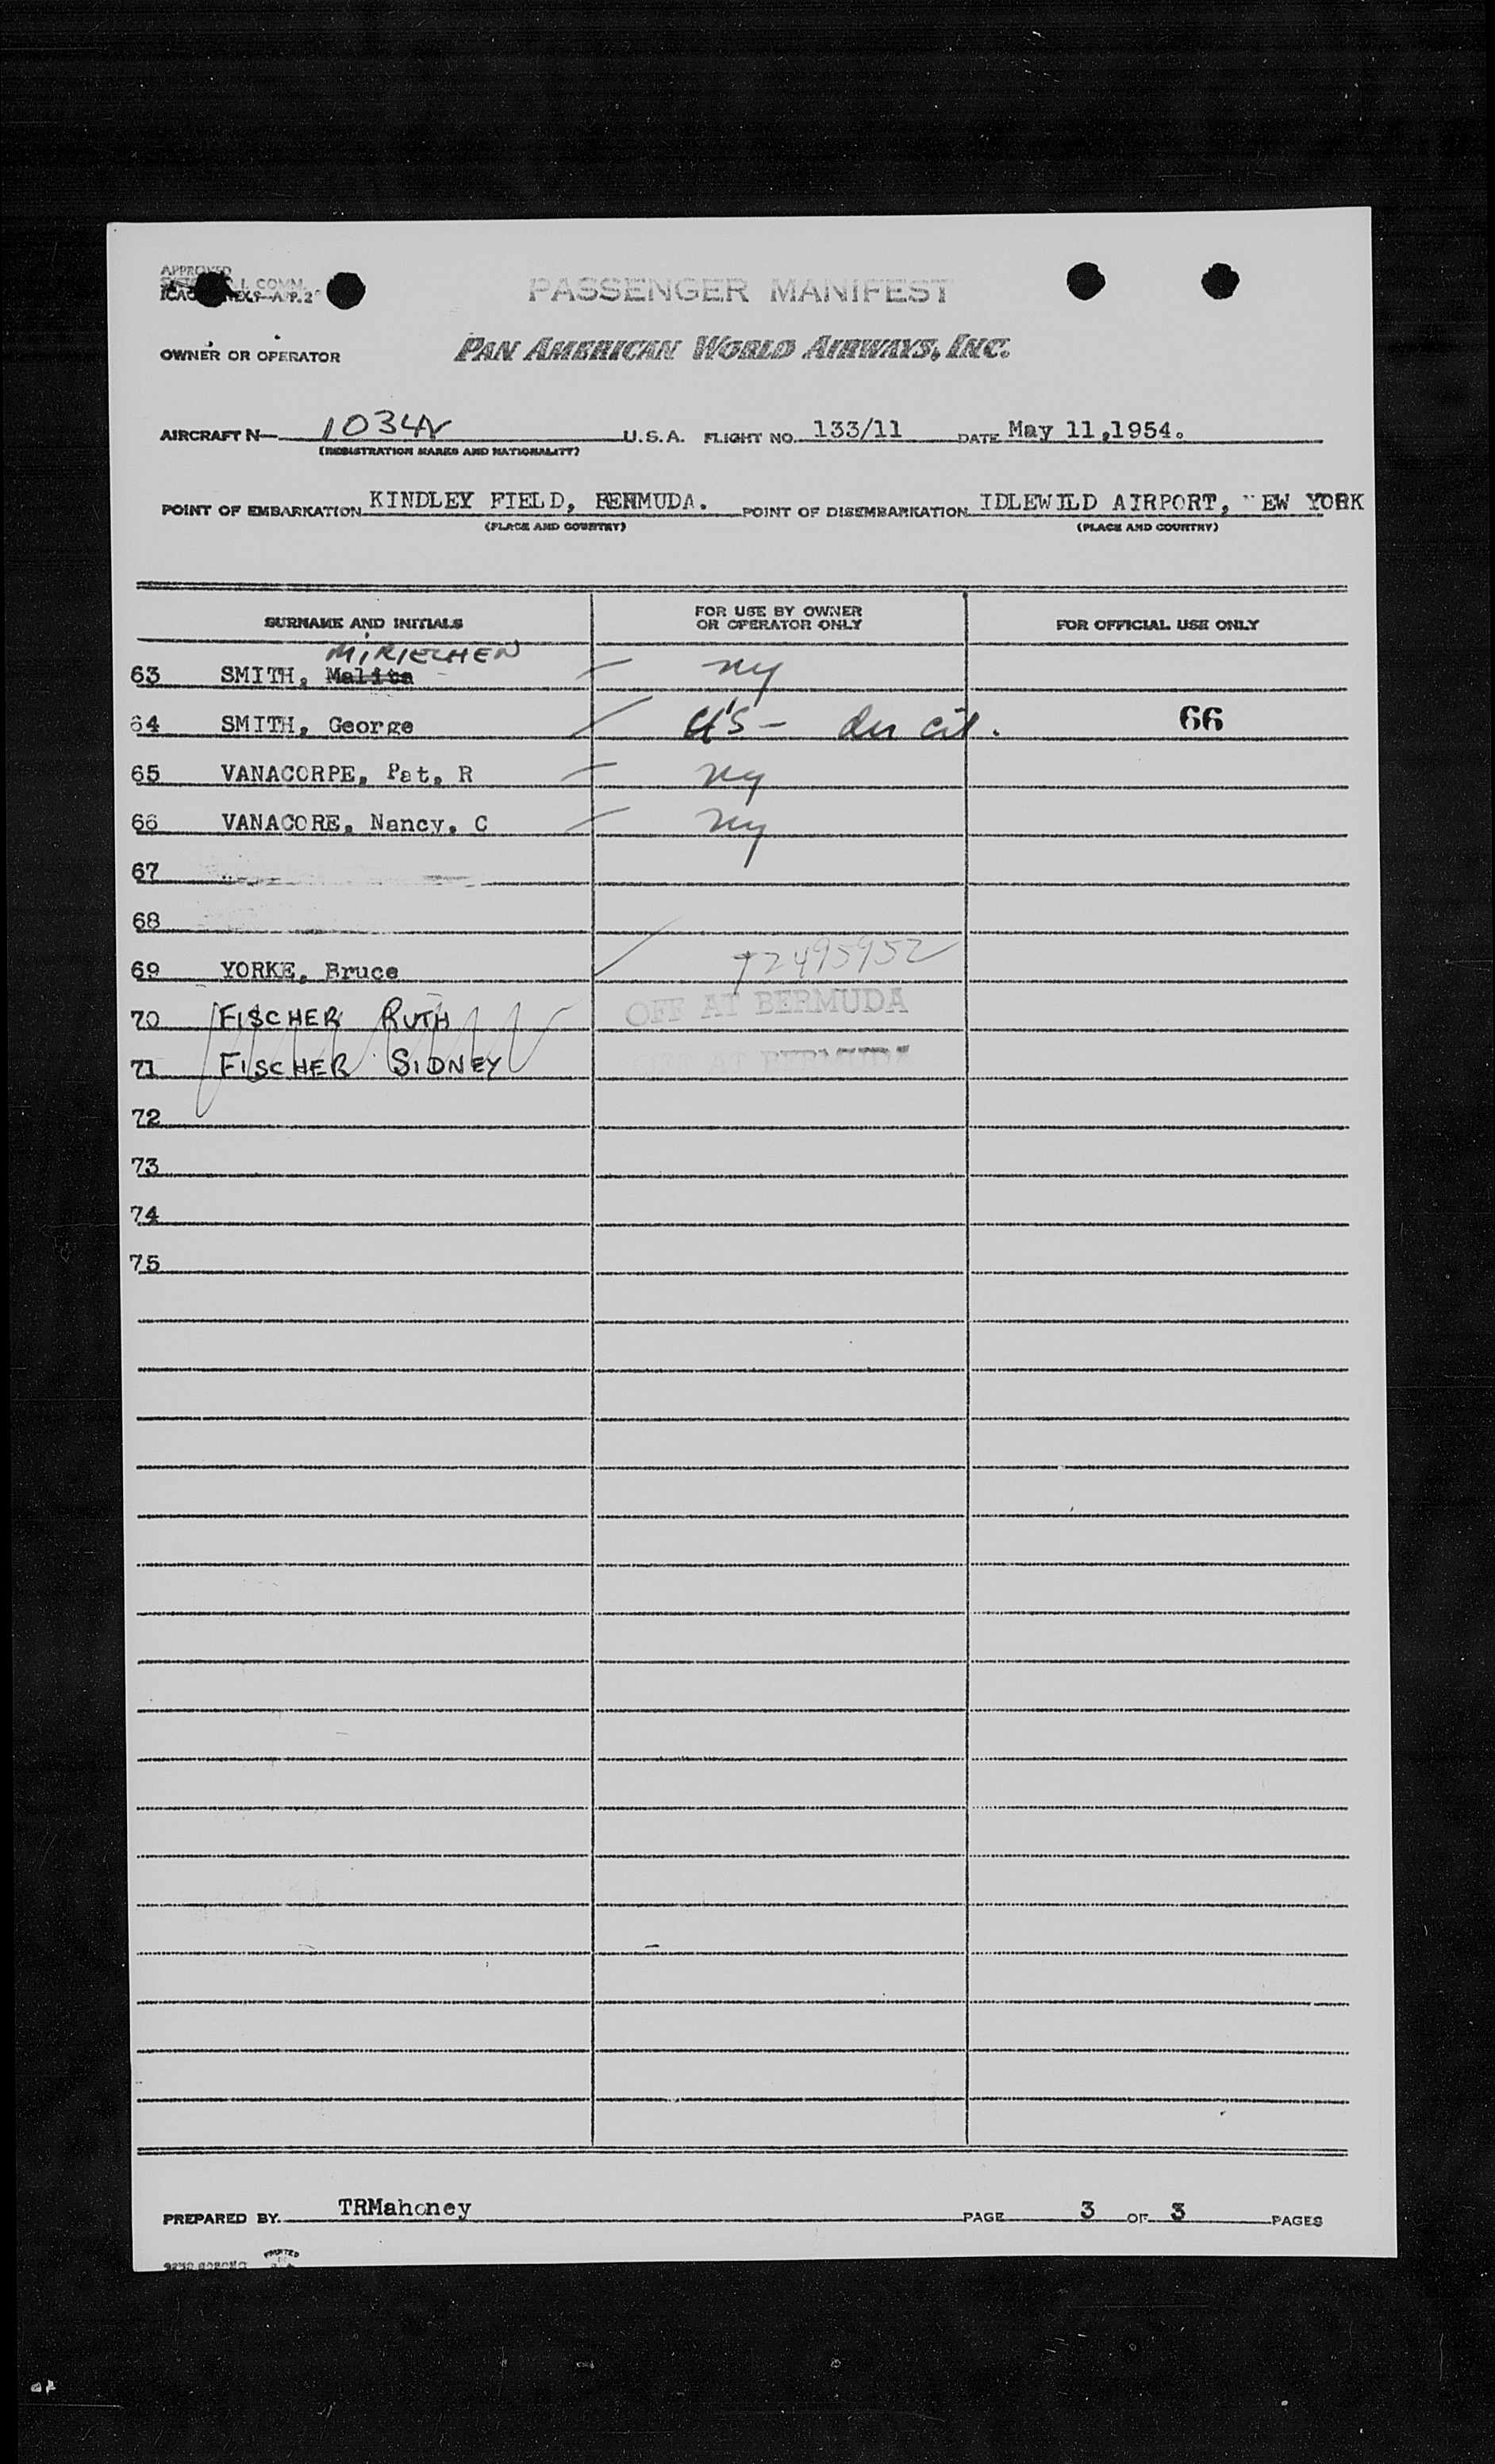 APPROVED
I. COMM.
PASSENGER MANIFEST
OWNER OR OPERATOR PAN AMERICAN WORLD AIRWAYS, INC.
AIRCRAFT N— 1034V U.S.A. FLIGHT NO. 133/11 DATE May 11,1954.
(REGISTRATION MARKS AND NATIONALITY)
POINT OF EMBARKATION KINDLEY FIELD, BERMUDA. POINT OF DISEMBARKATION IDLEWILD AIRPORT, NEW YORK
(PLACE AND COUNTRY) (PLACE AND COUNTRY)
SURNAME AND INITIALS FOR USE BY OWNER OR OPERATOR ONLY FOR OFFICIAL USE ONLY
MIRIECHEN
63 SMITH, Malita ny
64 SMITH, George US – 66
65 VANACORPE, Pat, R ny
66 VANACORE, Nancy, C ny
67
68
69 YORKE, Bruce T2495952
70 FISCHER RUTH OFF AT BERMUDA
71 FISCHER SIDNEY OFF AT BERMUDA
72
73
74
75
PREPARED BY TRMahoney PAGE 3 OF 3 PAGES
PRINTED